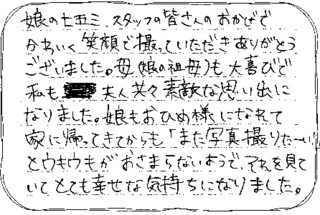 娘の七五三、スタッフの皆さんのおかげで
かわいく笑顔で撮っていただきありがとう
ございました。母(娘の祖母)も大喜びで
私も 夫人共々素敵な思い出に
なりました。娘もおひめ様になれて
家に帰ってきてからも「また写真撮りた〜い」
とウキウキがおさまらないようで、それを見て
いてとても幸せな気持ちになりました。